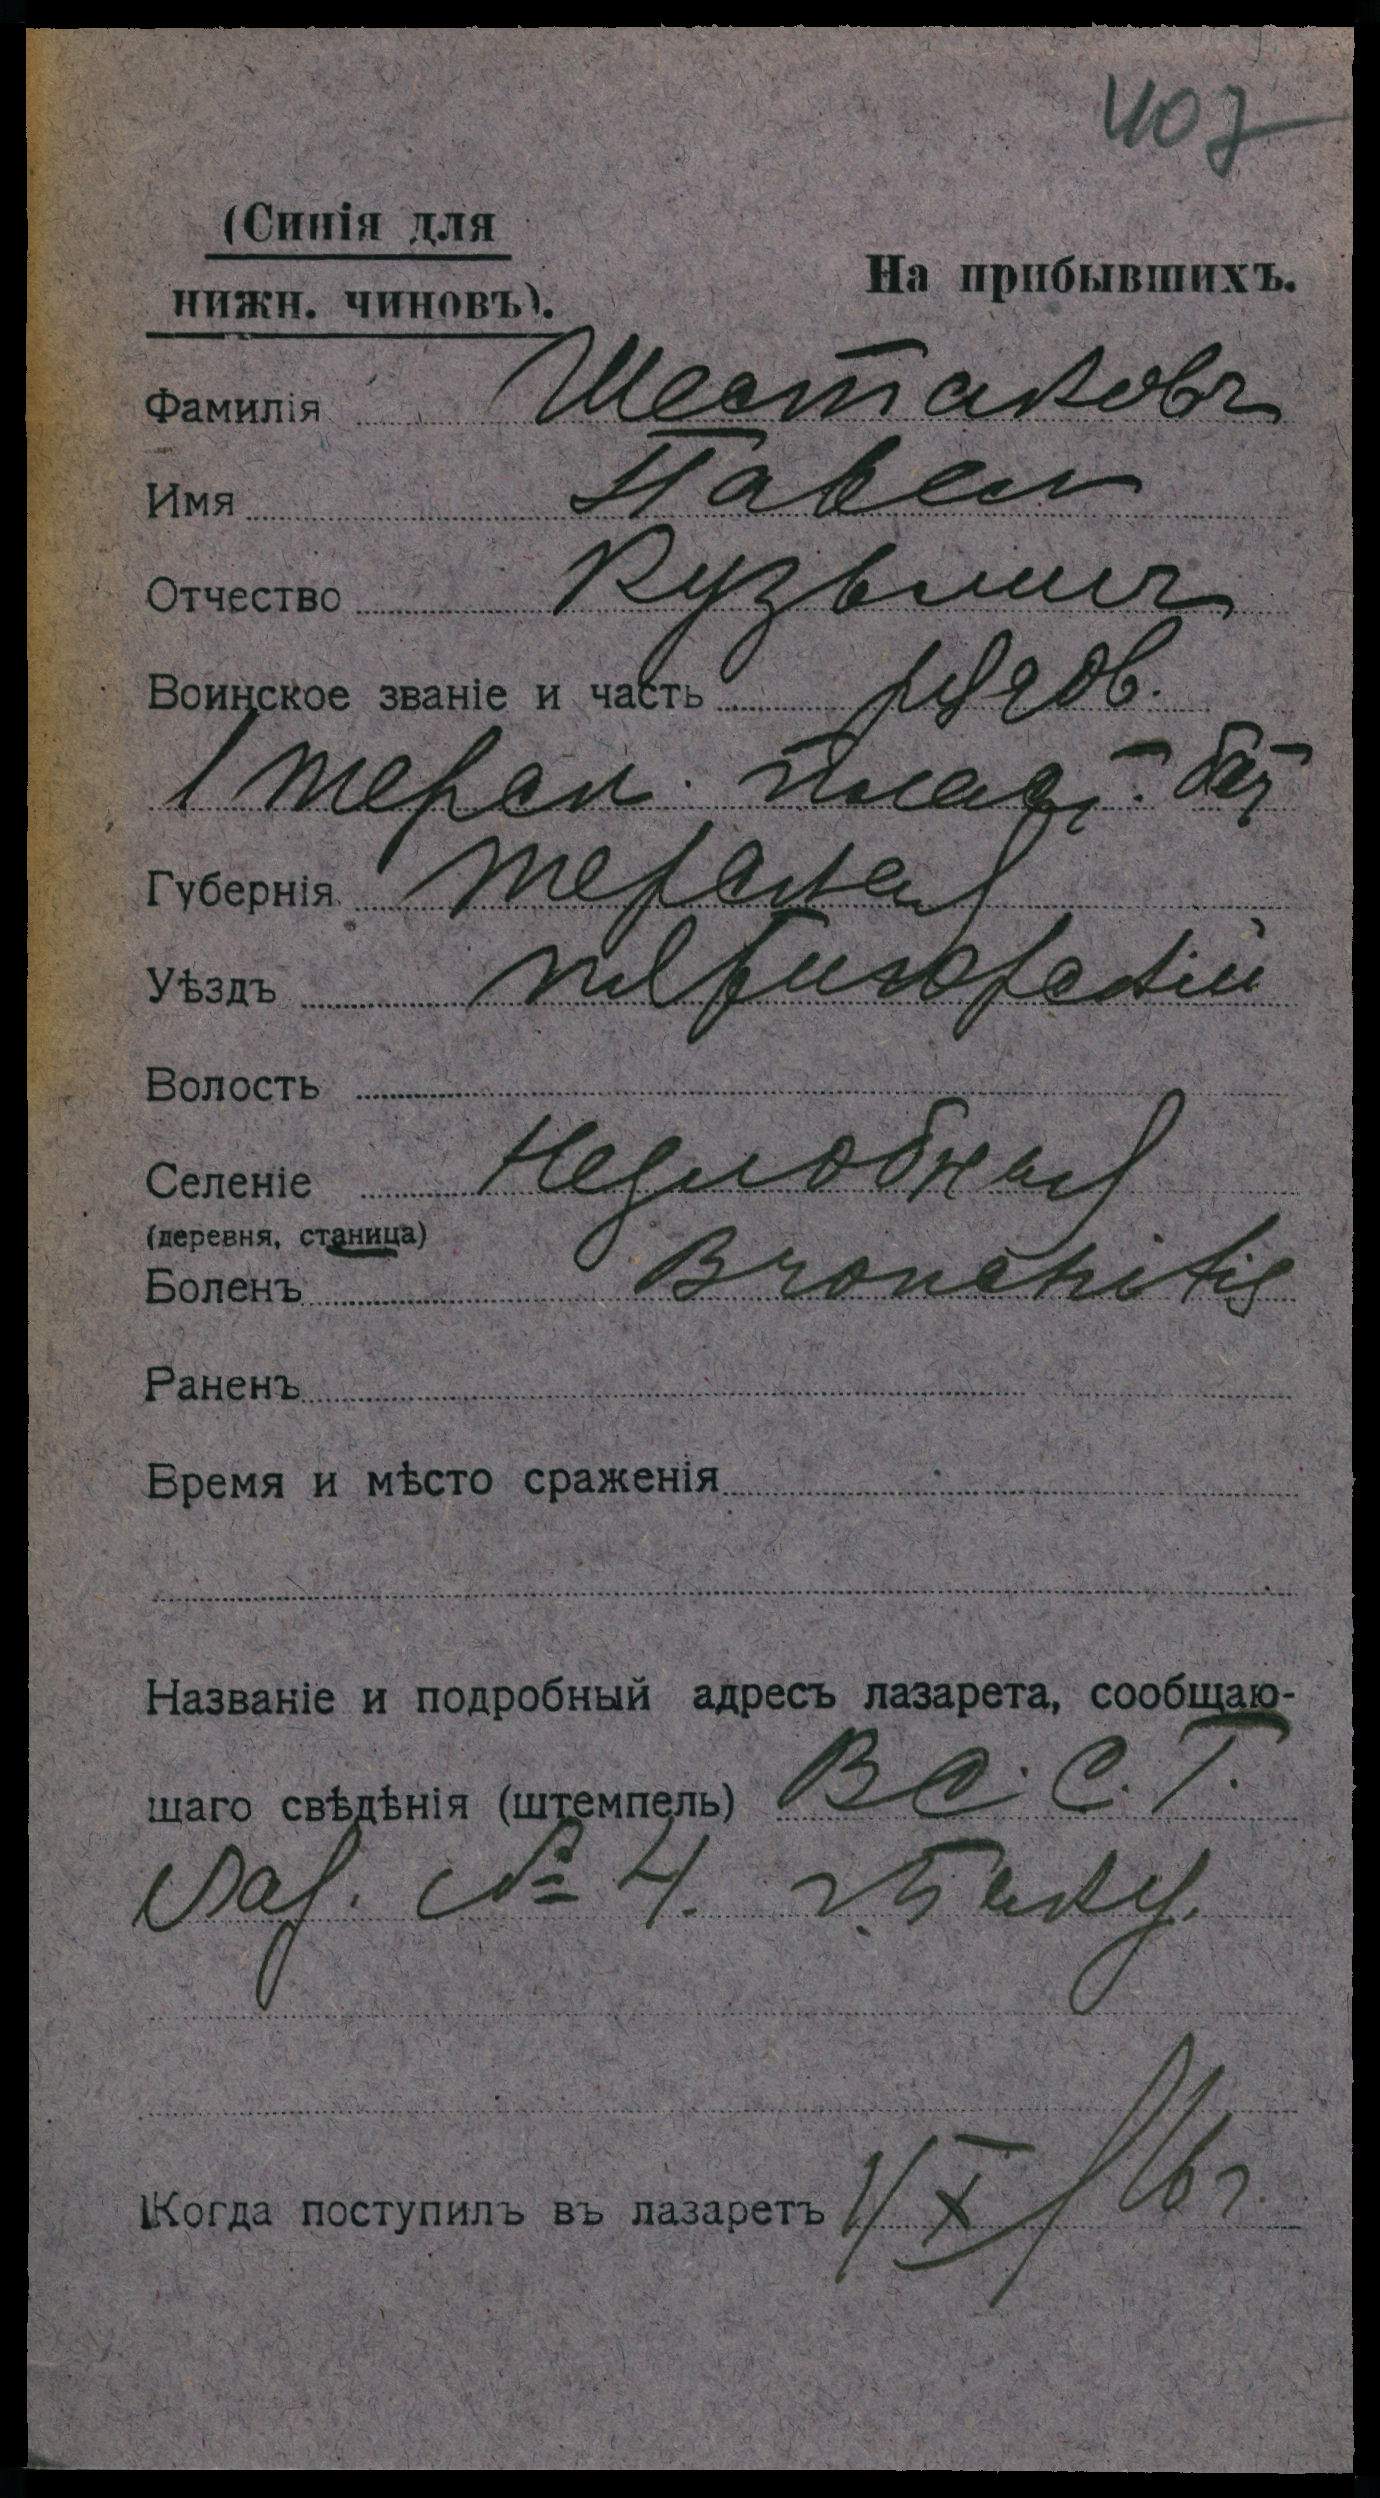 407
(Синія для
нижн. чиновъ).
На прибывшихъ.
Фамилія Шестаковъ
Имя Павел
Отчество Кузьмич
Воинское званіе и часть рядов.
1 Терск. Пласт. бат
Губернія Терская
Уѣздъ Пятигорскій
Волость
Селеніе Незлобная
(деревня, станица)
Боленъ Bronchitis
Раненъ
Время и мѣсто сраженія
Названіе и подробный адресъ лазарета, сообщаю-
щаго свѣдѣнія (штемпель) В С. С. Г.
Лаз. № 4. г. Баку.
Когда поступилъ въ лазаретъ 1/X 16 г.